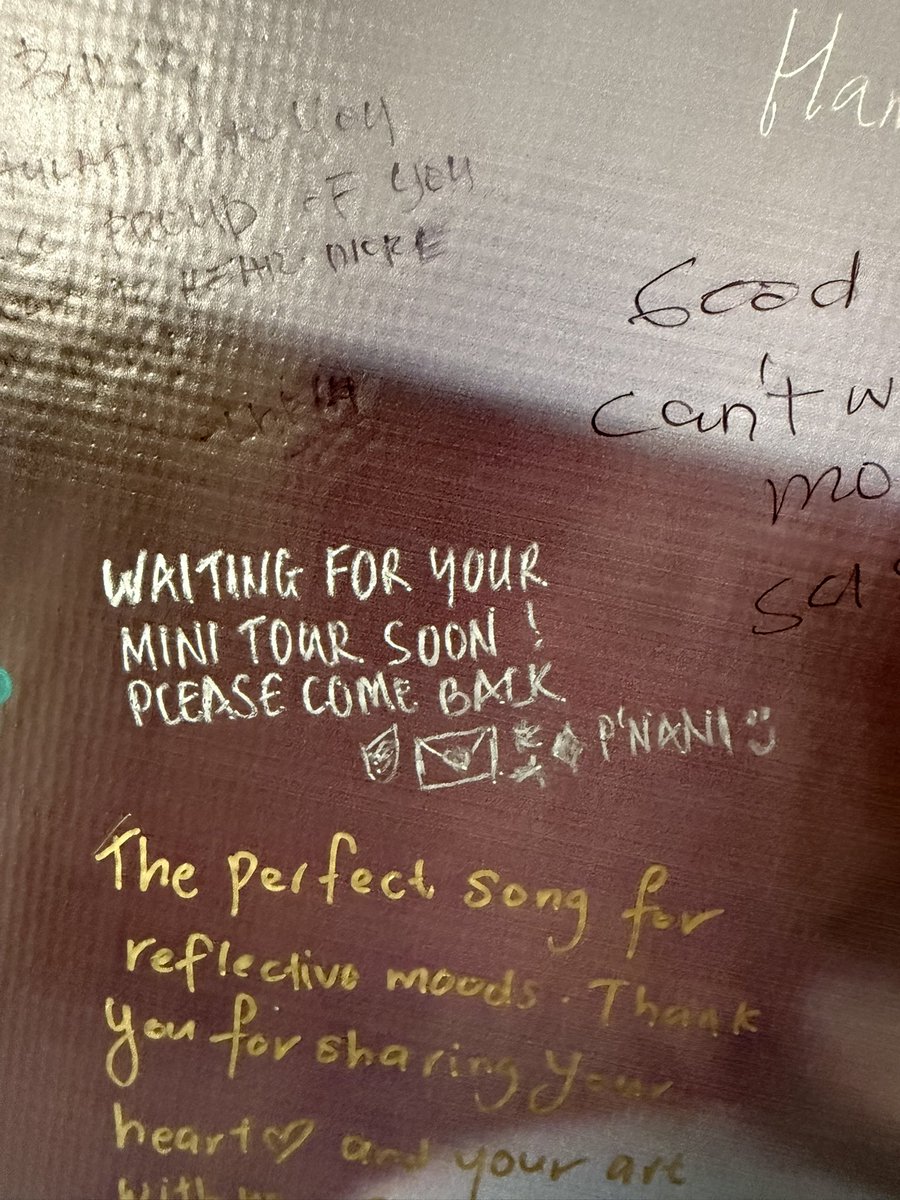 YOU
PROUD OF YOU
HEAR MORE
Han
Good
can't w
mo
WAITING FOR YOUR
MINI TOUR SOON !
PLEASE COME BACK
P'NANI :)
The perfect song for
reflective moods. Thank
you for sharing your
heart♡ and your art
with